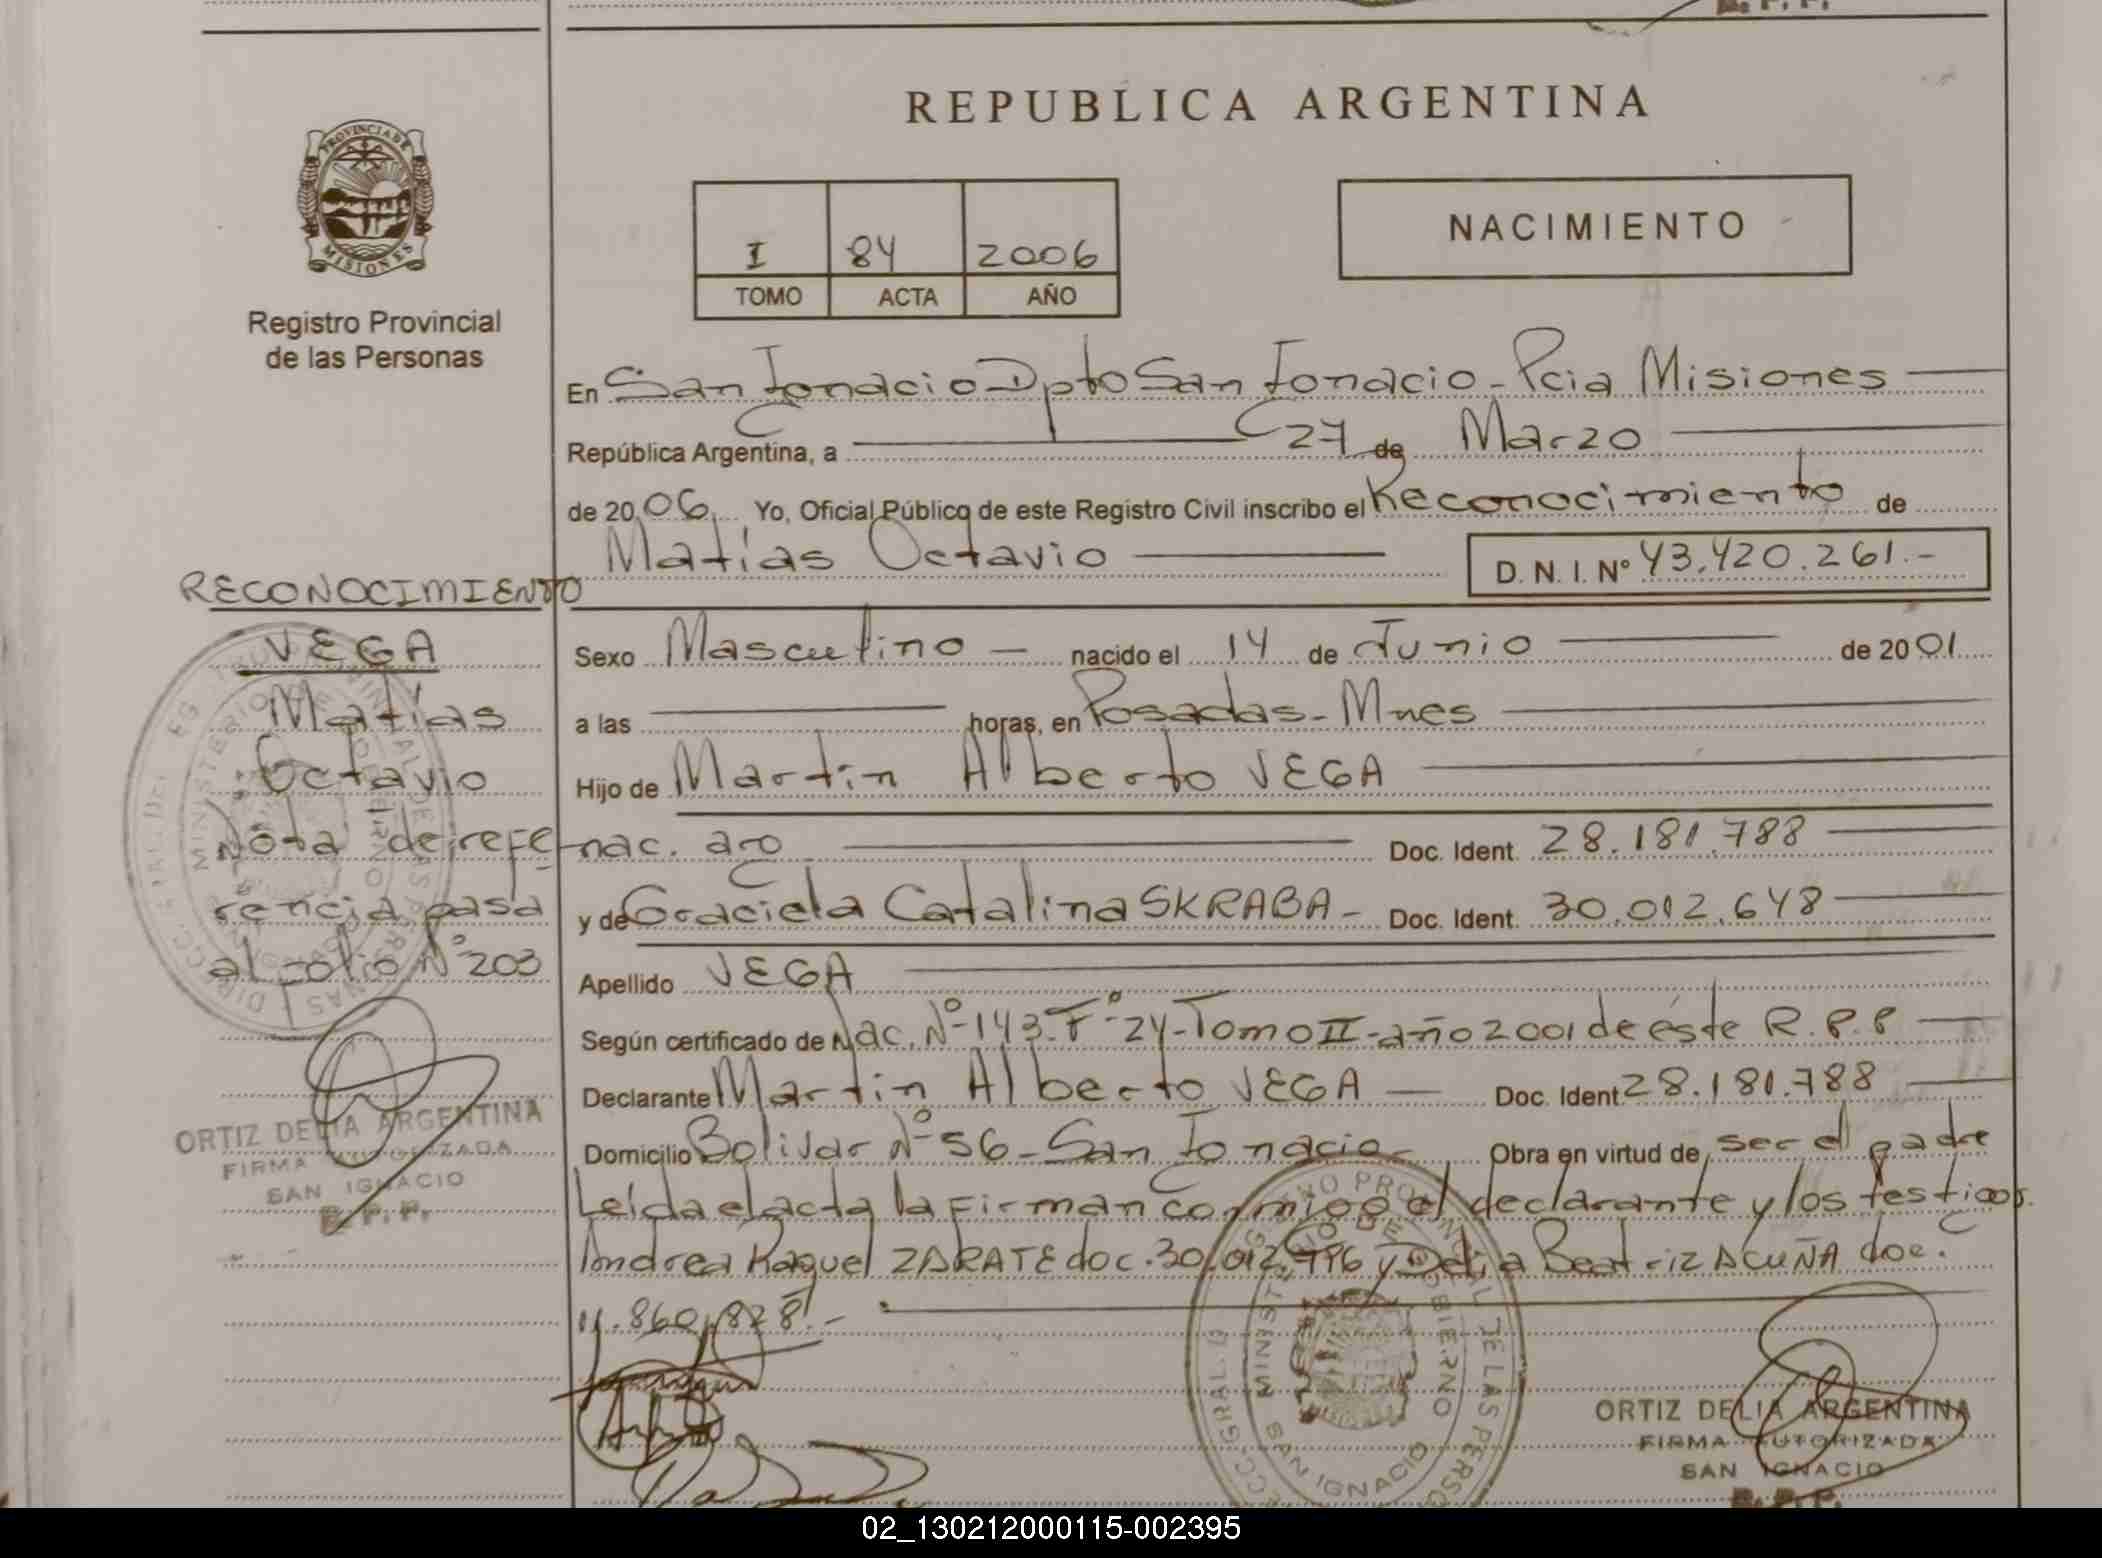 REPUBLICA ARGENTINA
PROVINCIA DE
MISIONES
Registro Provincial
de las Personas
I 84 2006
TOMO ACTA AÑO
NACIMIENTO
En San Ignacio Dpto San Ignacio - Pcia Misiones
República Argentina, a 27 de Marzo
de 2006 Yo, Oficial Público de este Registro Civil inscribo el Reconocimiento de
Matías Octavio
D. N. I. Nº 43.420.261.-
RECONOCIMIENTO
VEGA
Matías
Octavio
Nota de refe-
rencia pasa
al folio Nº 203
Sexo Masculino - nacido el 14 de Junio de 2001
a las horas, en Posadas - Mnes
Hijo de Martin Alberto VEGA
nac. arg Doc. Ident. 28.181.788
y de Graciela Catalina SKRABA - Doc. Ident. 30.012.648
Apellido VEGA
Según certificado de Nac. Nº 143-Fº 24-Tomo II-año 2001 de éste R.P.P
Declarante Martin Alberto VEGA Doc. Ident 28.181.788
Domicilio Bolivar Nº 56 - San Ignacio - Obra en virtud de ser el padre
Leída el acta la firman conmigo el declarante y los testigos.
Andrea Raquel ZARATE doc. 30.012. y Delia Beatriz ACUÑA doc.
11.860.828.-
ORTIZ DELIA ARGENTINA
FIRMA AUTORIZADA
SAN IGNACIO
R. P. P.
ORTIZ DELIA ARGENTINA
FIRMA AUTORIZADA
SAN IGNACIO
R. P. P.
02_130212000115-002395